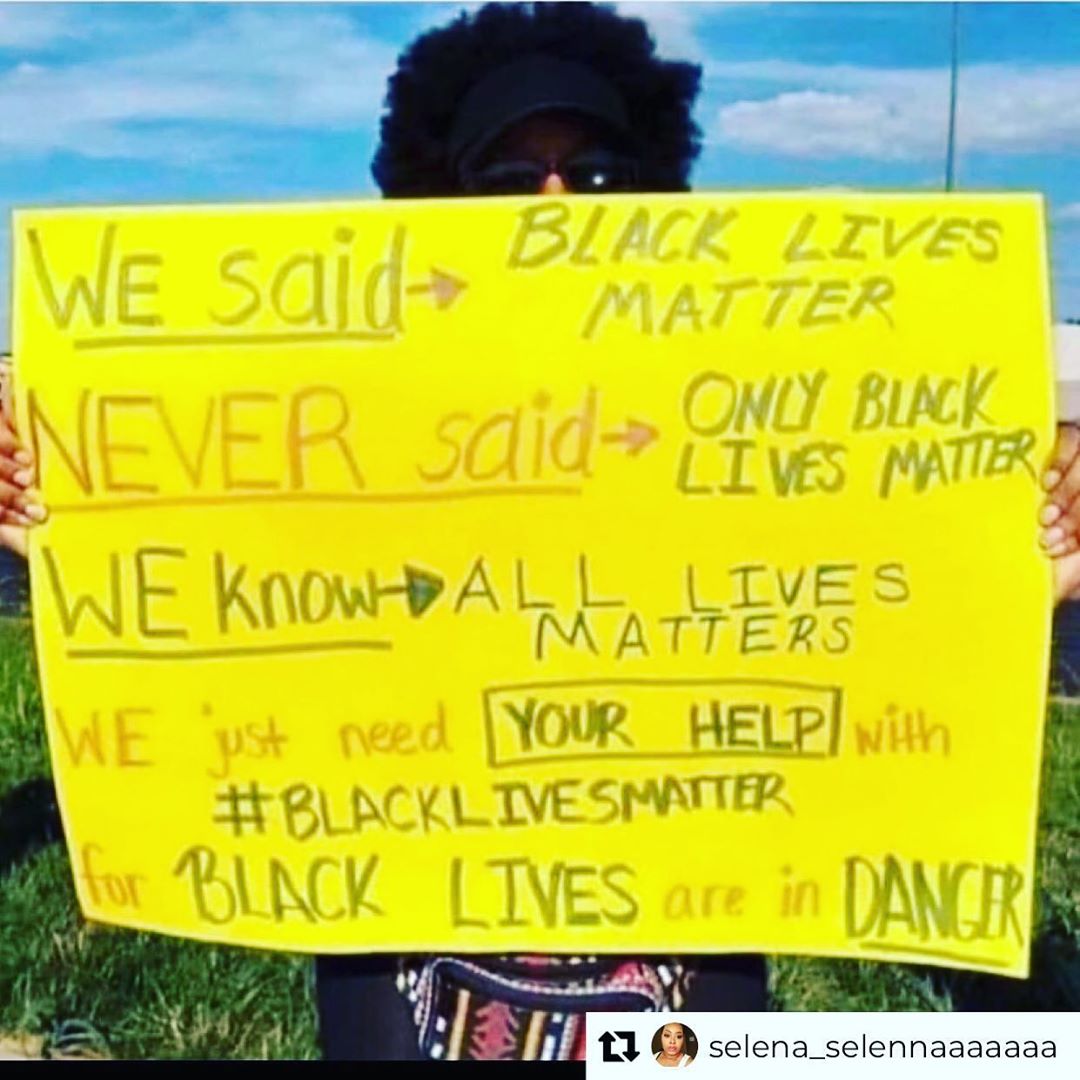 WE said→ BLACK LIVES
MATTER
NEVER said→ ONLY BLACK
LIVES MATTER
WE know→ ALL LIVES
MATTERS
WE just need YOUR HELP with
#BLACKLIVESMATTER
for BLACK LIVES are in DANGER
selena_selennaaaaaaa